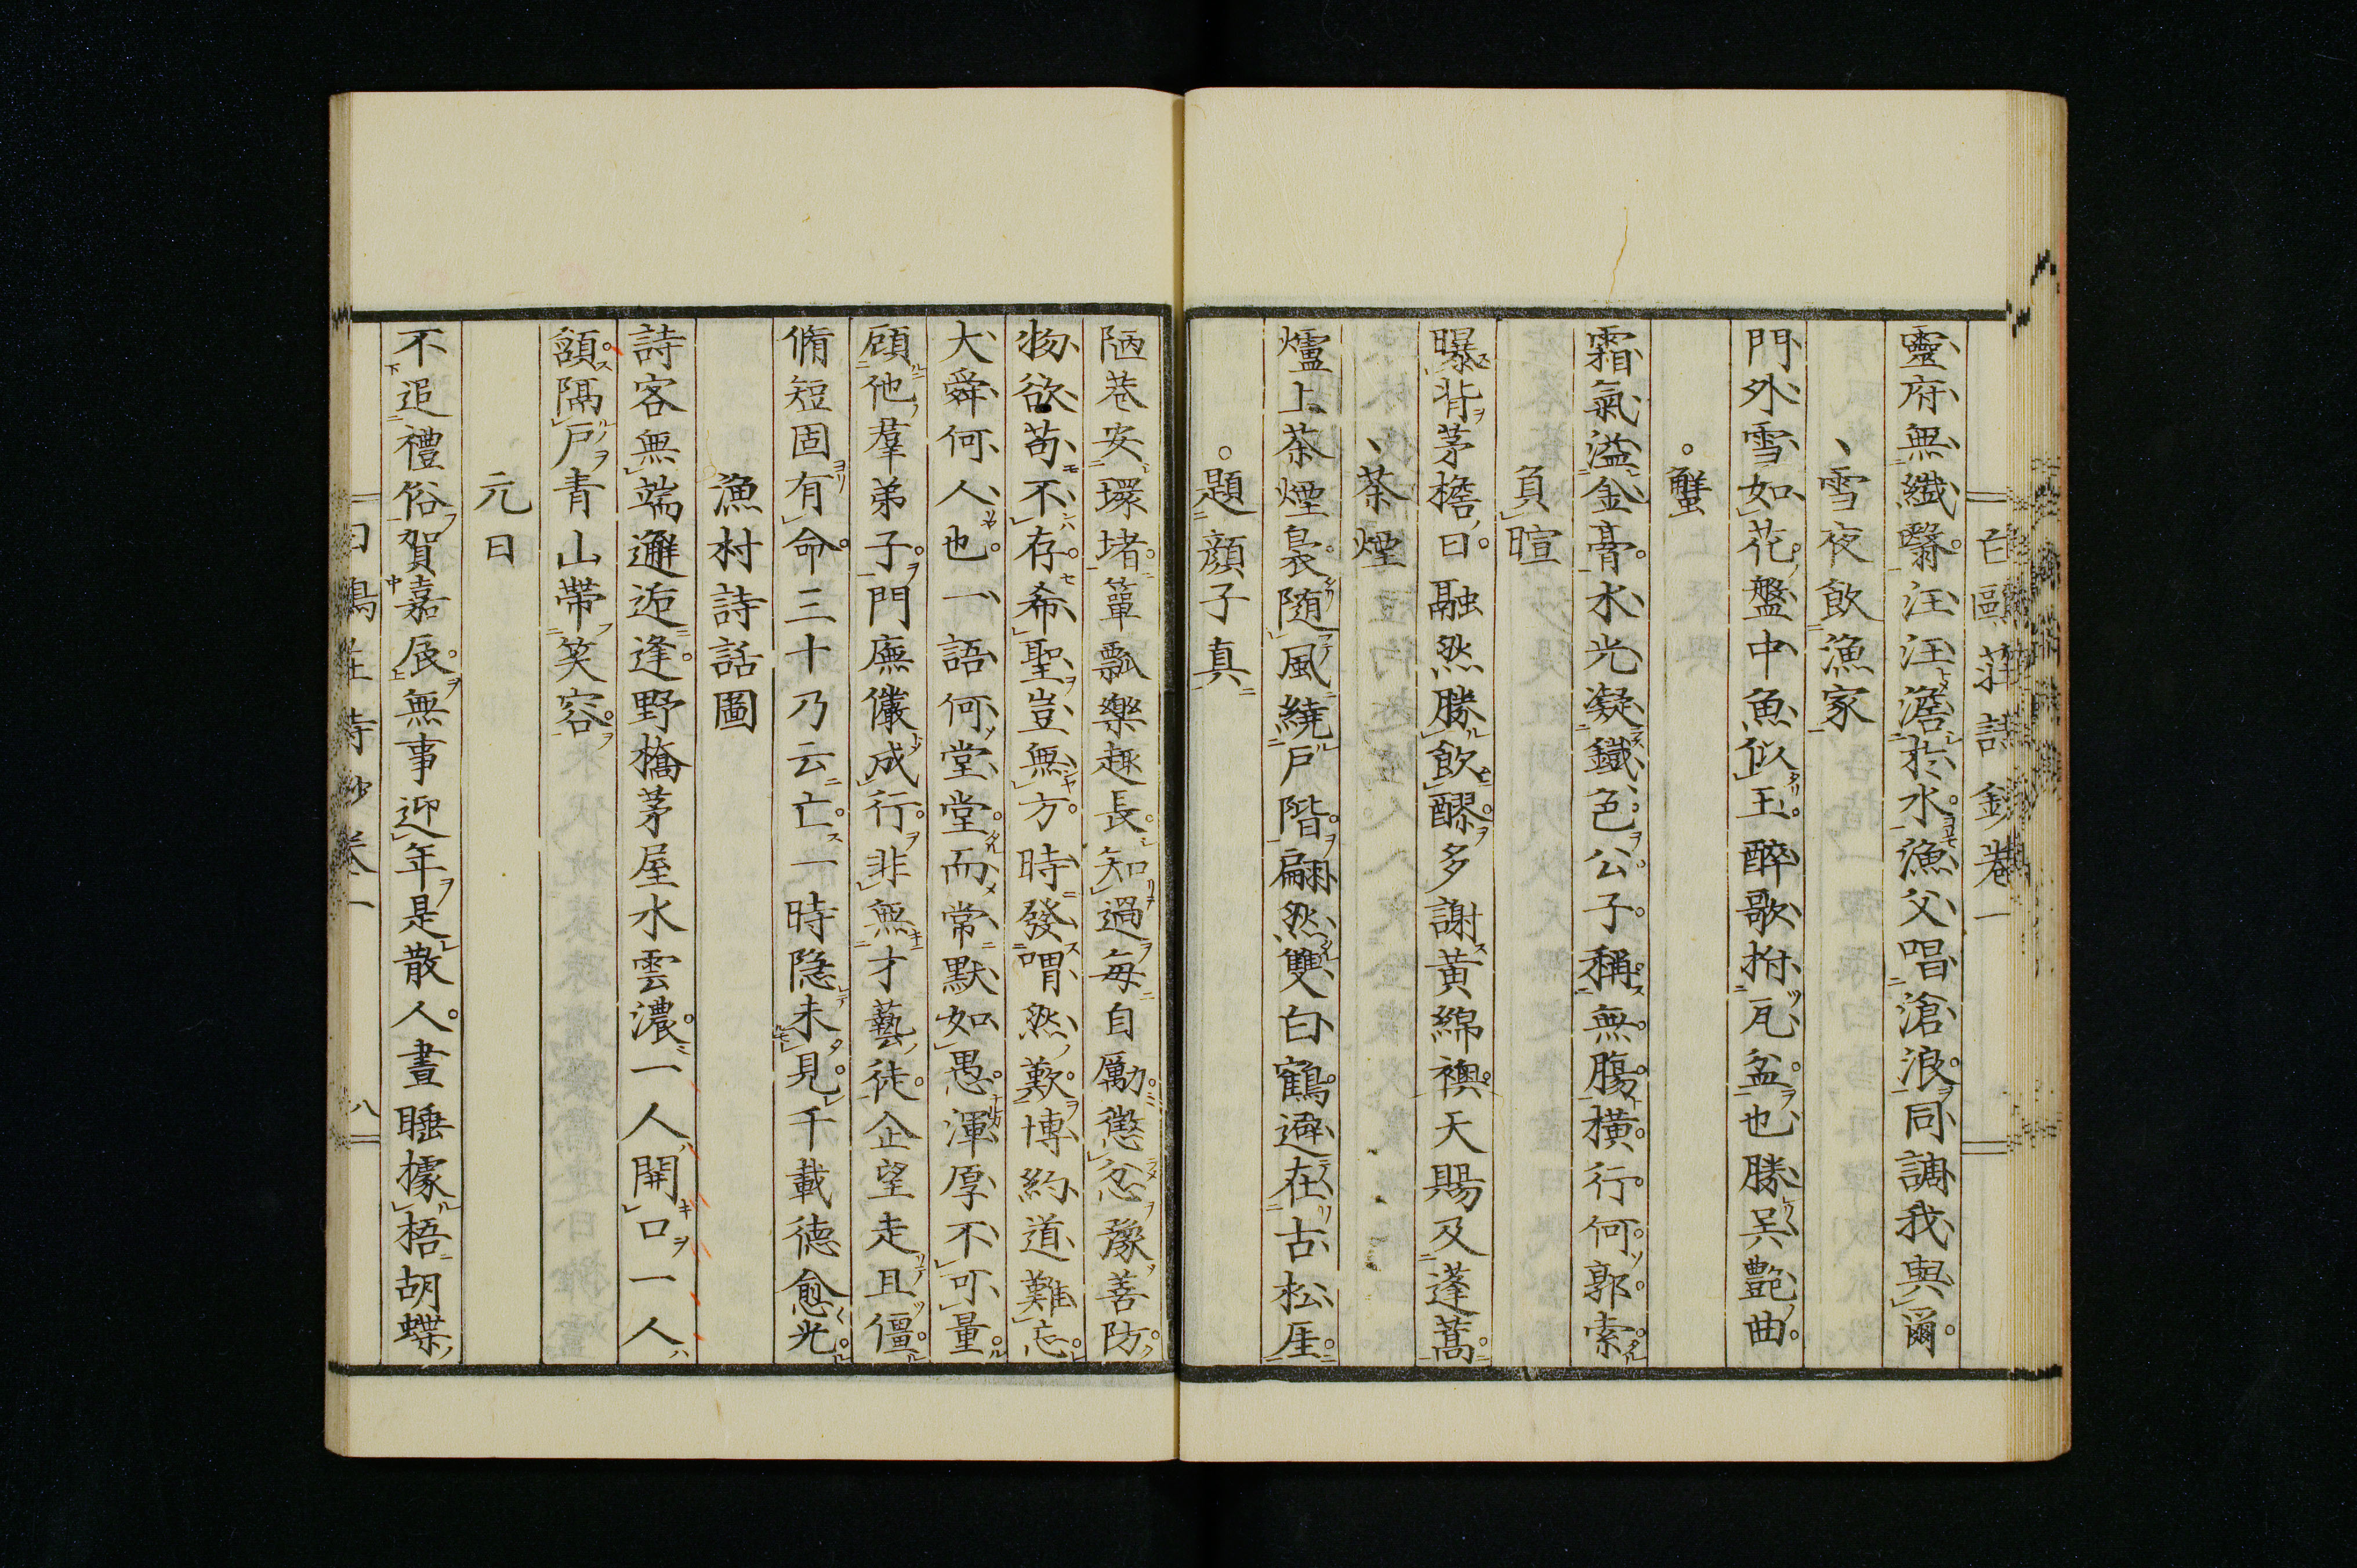 白鷗莊詩鈔卷一
靈府無纖翳汪汪澹於水漁父唱滄浪同調我與爾
雪夜飲漁家
門外雪如花盤中魚似玉醉歌拊瓦盆也勝吳艷曲
蟹
霜氣溢金膏水光凝鐵色公子稱無腸橫行何郭索
負暄
曝背茅檐日融然勝飲醪多謝黃綿襖天賜及蓬蒿
茶煙
爐上茶煙裊隨風繞戶階翩然雙白鶴避在古松厓
題顏子真
陋巷安環堵簞瓢樂趣長知過每自勵懲忿豫善防
物欲苟不存希聖豈無方時發喟然歎博約道難忘
大舜何人也一語何堂堂而常默如愚渾厚不可量
顧他羣弟子門廡儼成行非無才藝徒企望走且僵
脩短固有命三十乃云亡一時隱未見千載德愈光
漁村詩話圖
詩客無端邂逅逢野橋茅屋水雲濃一人開口一人
頷隔戶青山帶笑容
元日
不追禮俗賀嘉辰無事迎年是散人晝睡據梧胡蝶
白鷗莊詩鈔卷一 八